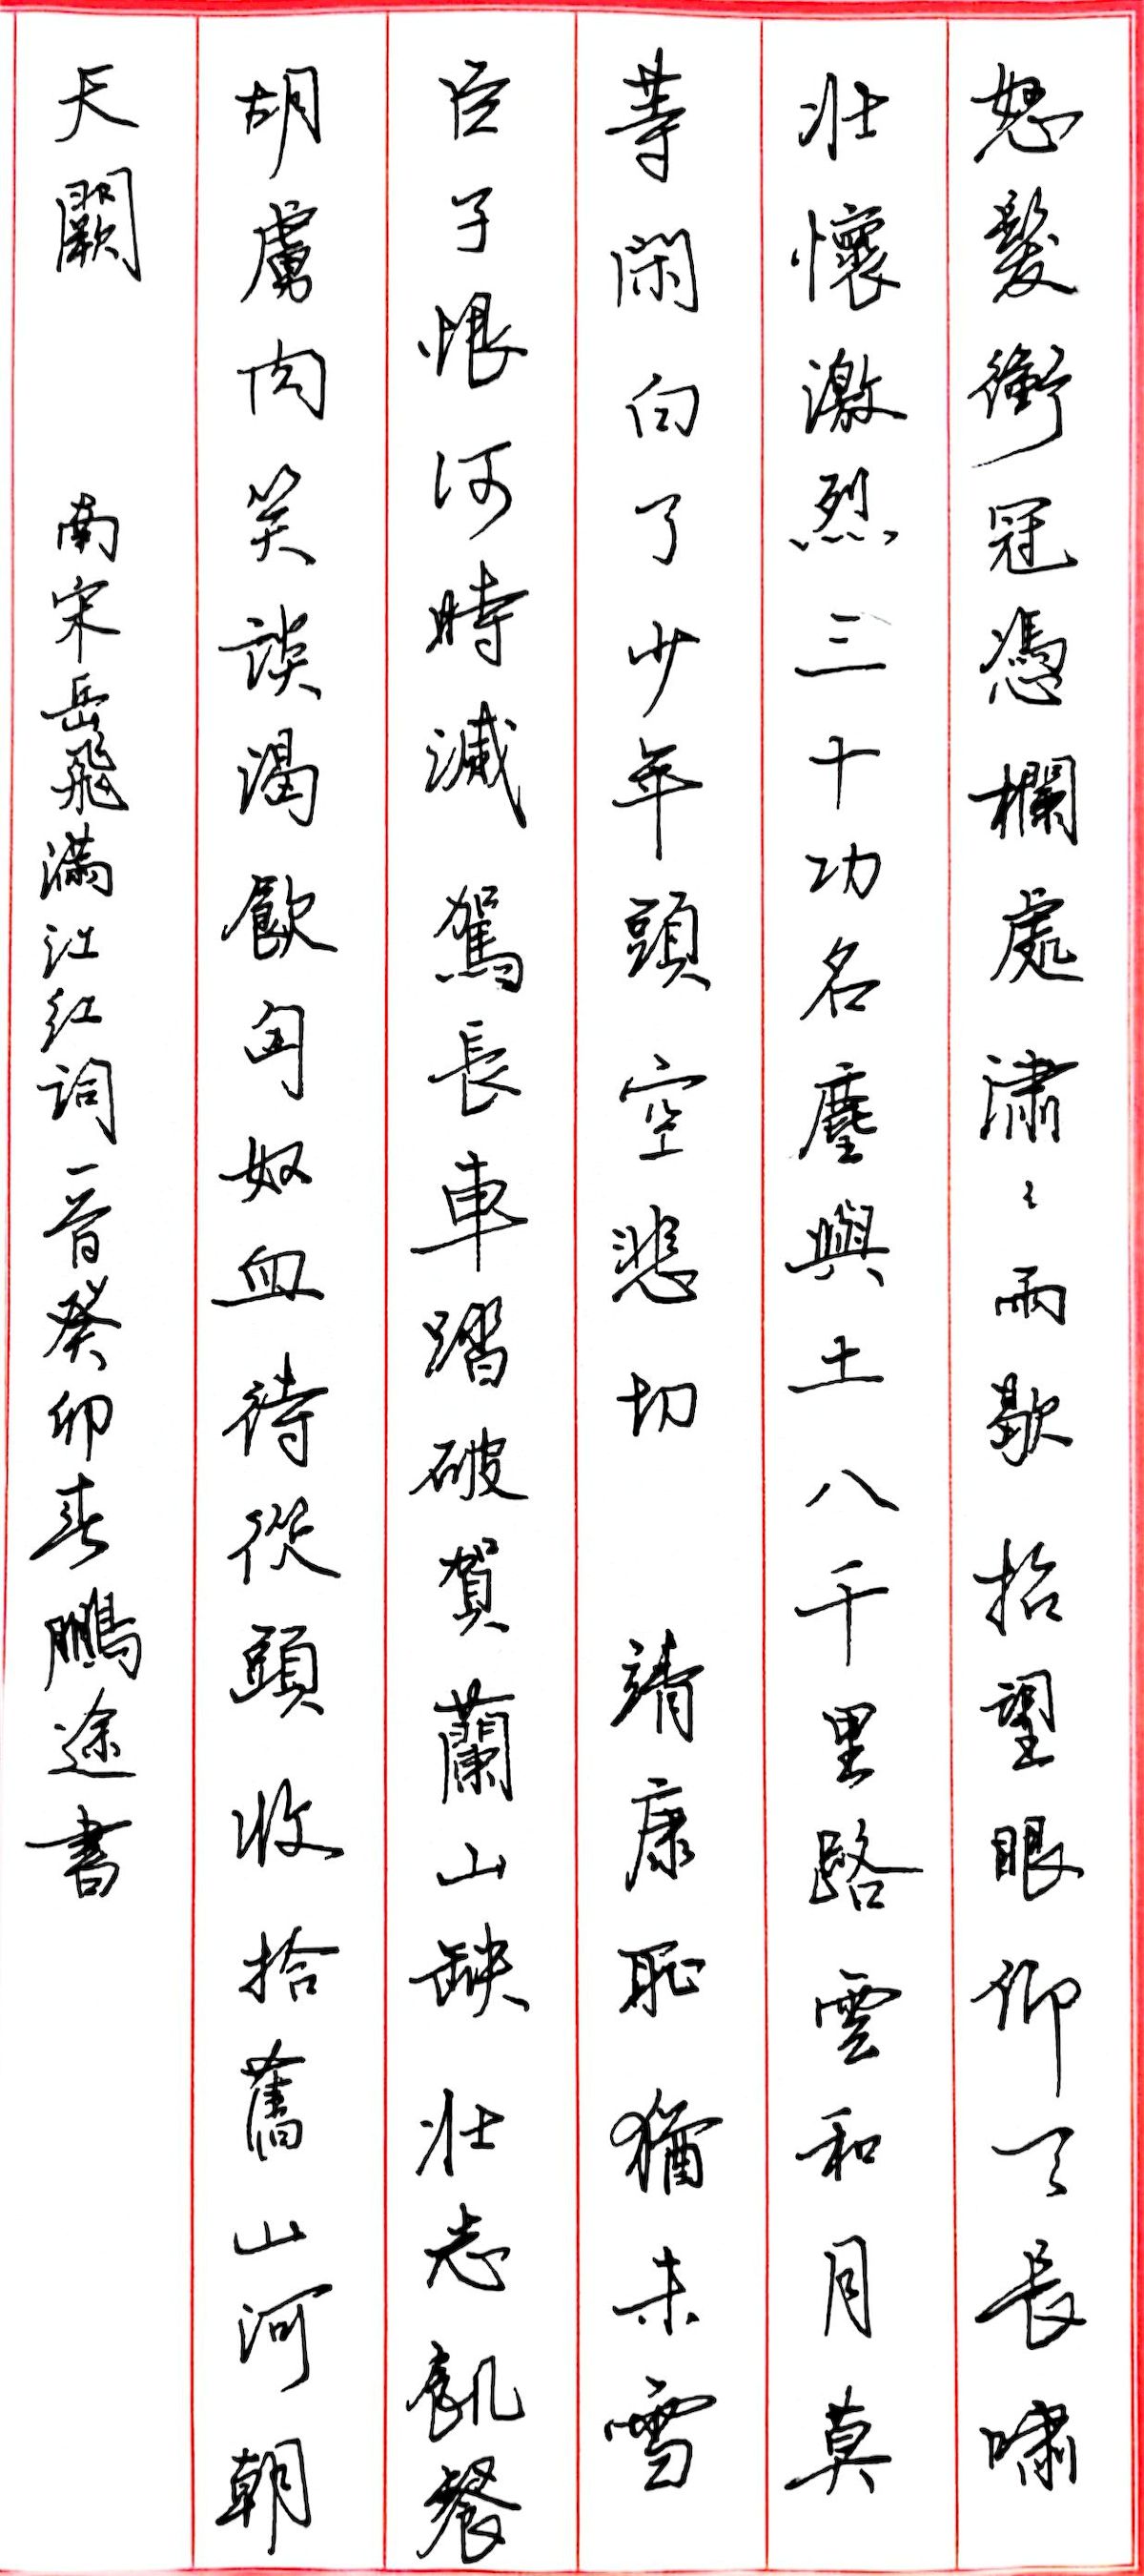 怒髮衝冠憑欄處潚〻雨歇抬望眼仰天長嘯
壯懷激烈三十功名塵與土八千里路雲和月莫
等閑白了少年頭空悲切靖康恥猶未雪
臣子恨何時滅駕長車踏破賀蘭山缺壯志飢餐
胡虜肉笑談渴飲匈奴血待從頭收拾舊山河朝
天闕
南宋岳飛滿江紅詞一首癸卯春鵬途書